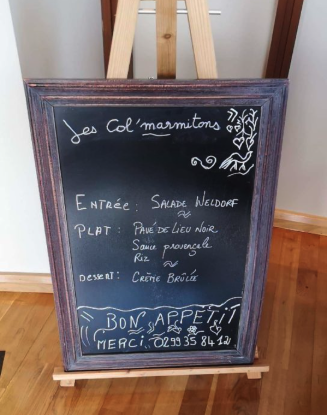 Les Col'marmitons
Entrée : Salade Weldorf
Plat : Pavé de Lieu Noir
Sauce provençale
Riz
Dessert : Crème Brûlée
BON APPETIT
MERCI. 0299 35 84 12